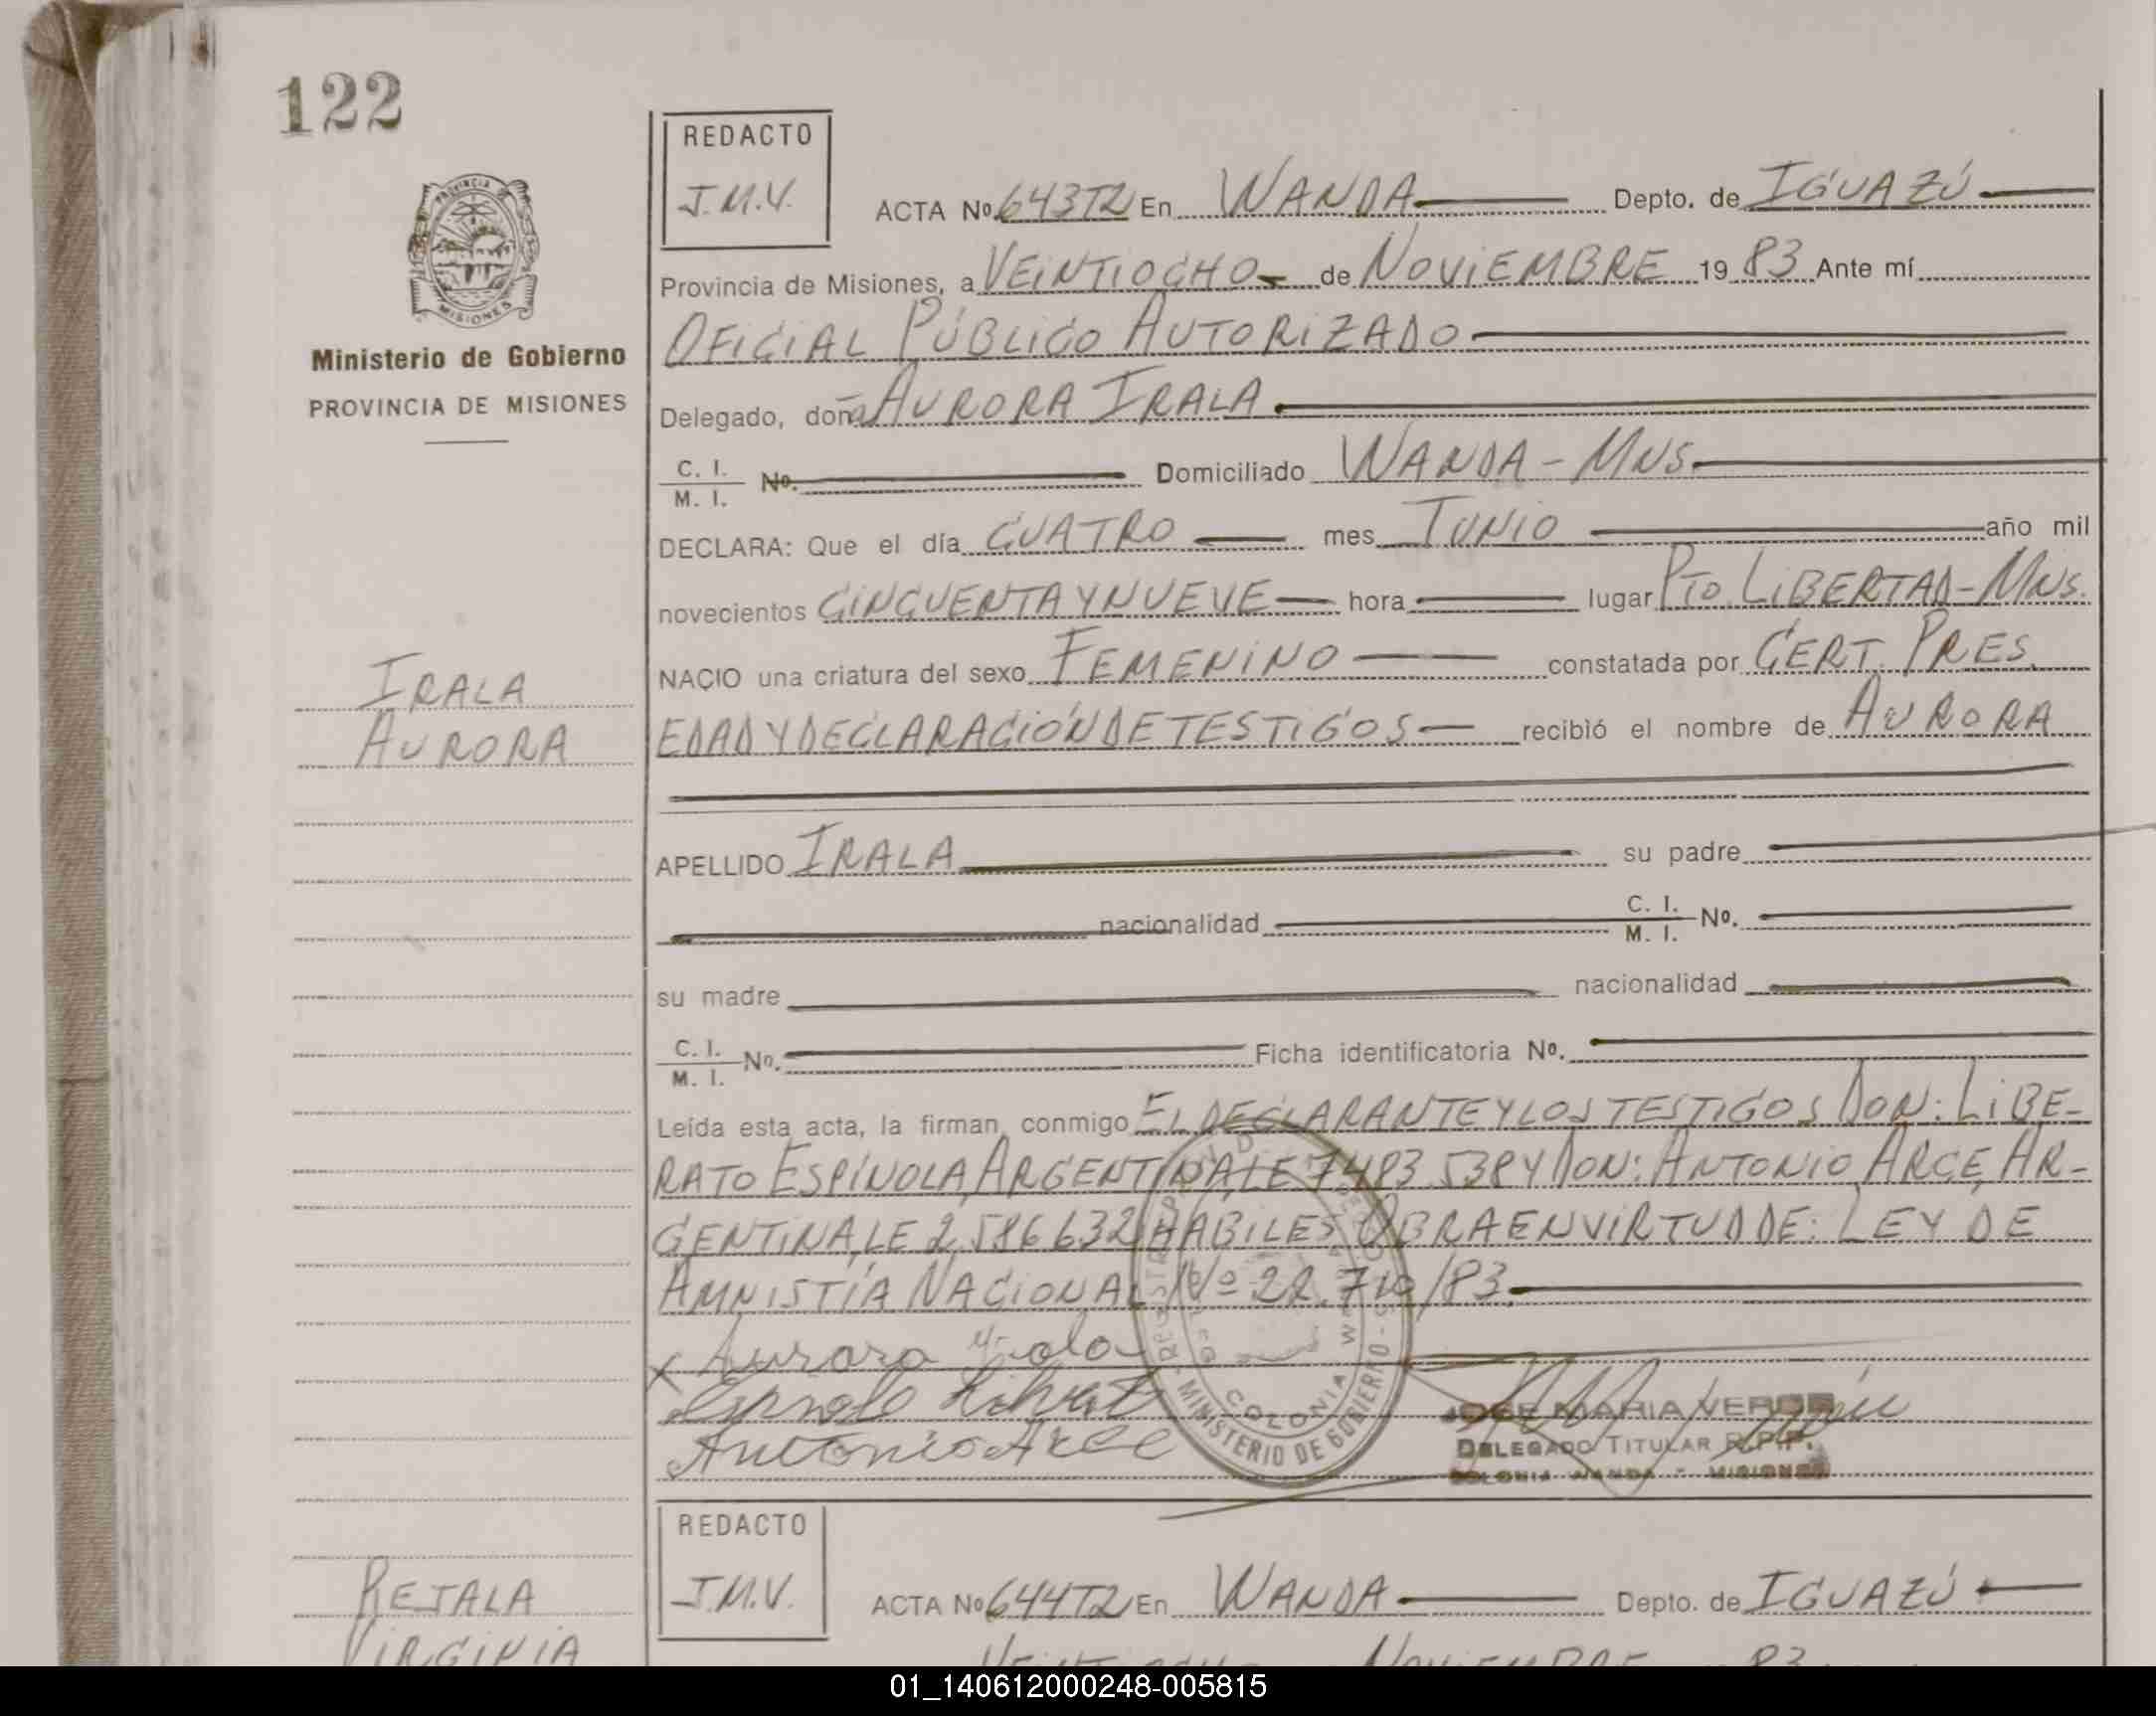 122
REDACTO
J.M.V.
ACTA Nº 643T2 En WANDA Depto. de IGUAZÚ
PROVINCIA DE MISIONES
Provincia de Misiones, a VEINTIOCHO de NOVIEMBRE 1983 Ante mí
OFICIAL PÚBLICO AUTORIZADO
Ministerio de Gobierno
PROVINCIA DE MISIONES
Delegado, doña AURORA IRALA
C. I.
M. I. No. Domiciliado WANDA - MNS.
DECLARA: Que el día CUATRO mes JUNIO año mil
novecientos CINCUENTA Y NUEVE hora lugar PTO. LIBERTAD - MNS.
NACIO una criatura del sexo FEMENINO constatada por CERT. PRES.
IRALA
AURORA
EDAD Y DECLARACIÓN DE TESTIGOS recibió el nombre de AURORA
APELLIDO IRALA su padre
nacionalidad C. I. M. I. Nº.
su madre nacionalidad
C. I. M. I. Nº. Ficha identificatoria Nº.
Leída esta acta, la firman conmigo EL DECLARANTE Y LOS TESTIGOS DON: LIBE-
RATO ESPÍNOLA, ARGENTINA, LE 7.483.538 Y DON: ANTONIO ARCE, AR-
GENTINA, LE 2.586.632 HABILES OBRA EN VIRTUD DE: LEY DE
AMNISTÍA NACIONAL Nº 22.710/83.
x Aurora Irala
Espinola Liberato
Antonio Arce
COLONIA WANDA
MINISTERIO DE GOBIERNO
JOSE MARIA VERON
DELEGADO TITULAR R.P.P.
COLONIA WANDA - MISIONES
REDACTO
J.M.V.
ACTA Nº 644T2 En WANDA Depto. de IGUAZÚ
REJALA
VIRGINIA
VEINTIOCHO NOVIEMBRE 83
01_140612000248-005815